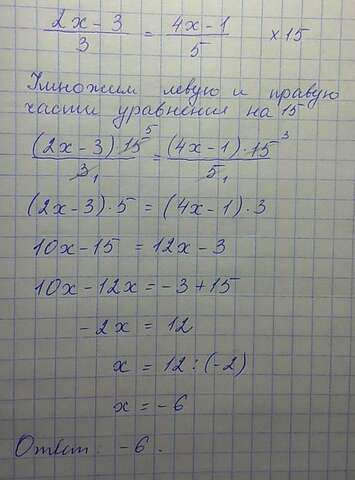 (2x-3)/3 = (4x-1)/5 ×15
Умножим левую и правую
части уравнения на 15
(2x-3)·15⁵/3₁ = (4x-1)·15³/5₁
(2x-3)·5 = (4x-1)·3
10x-15 = 12x-3
10x-12x = -3+15
-2x = 12
x = 12:(-2)
x = -6
Ответ: -6.